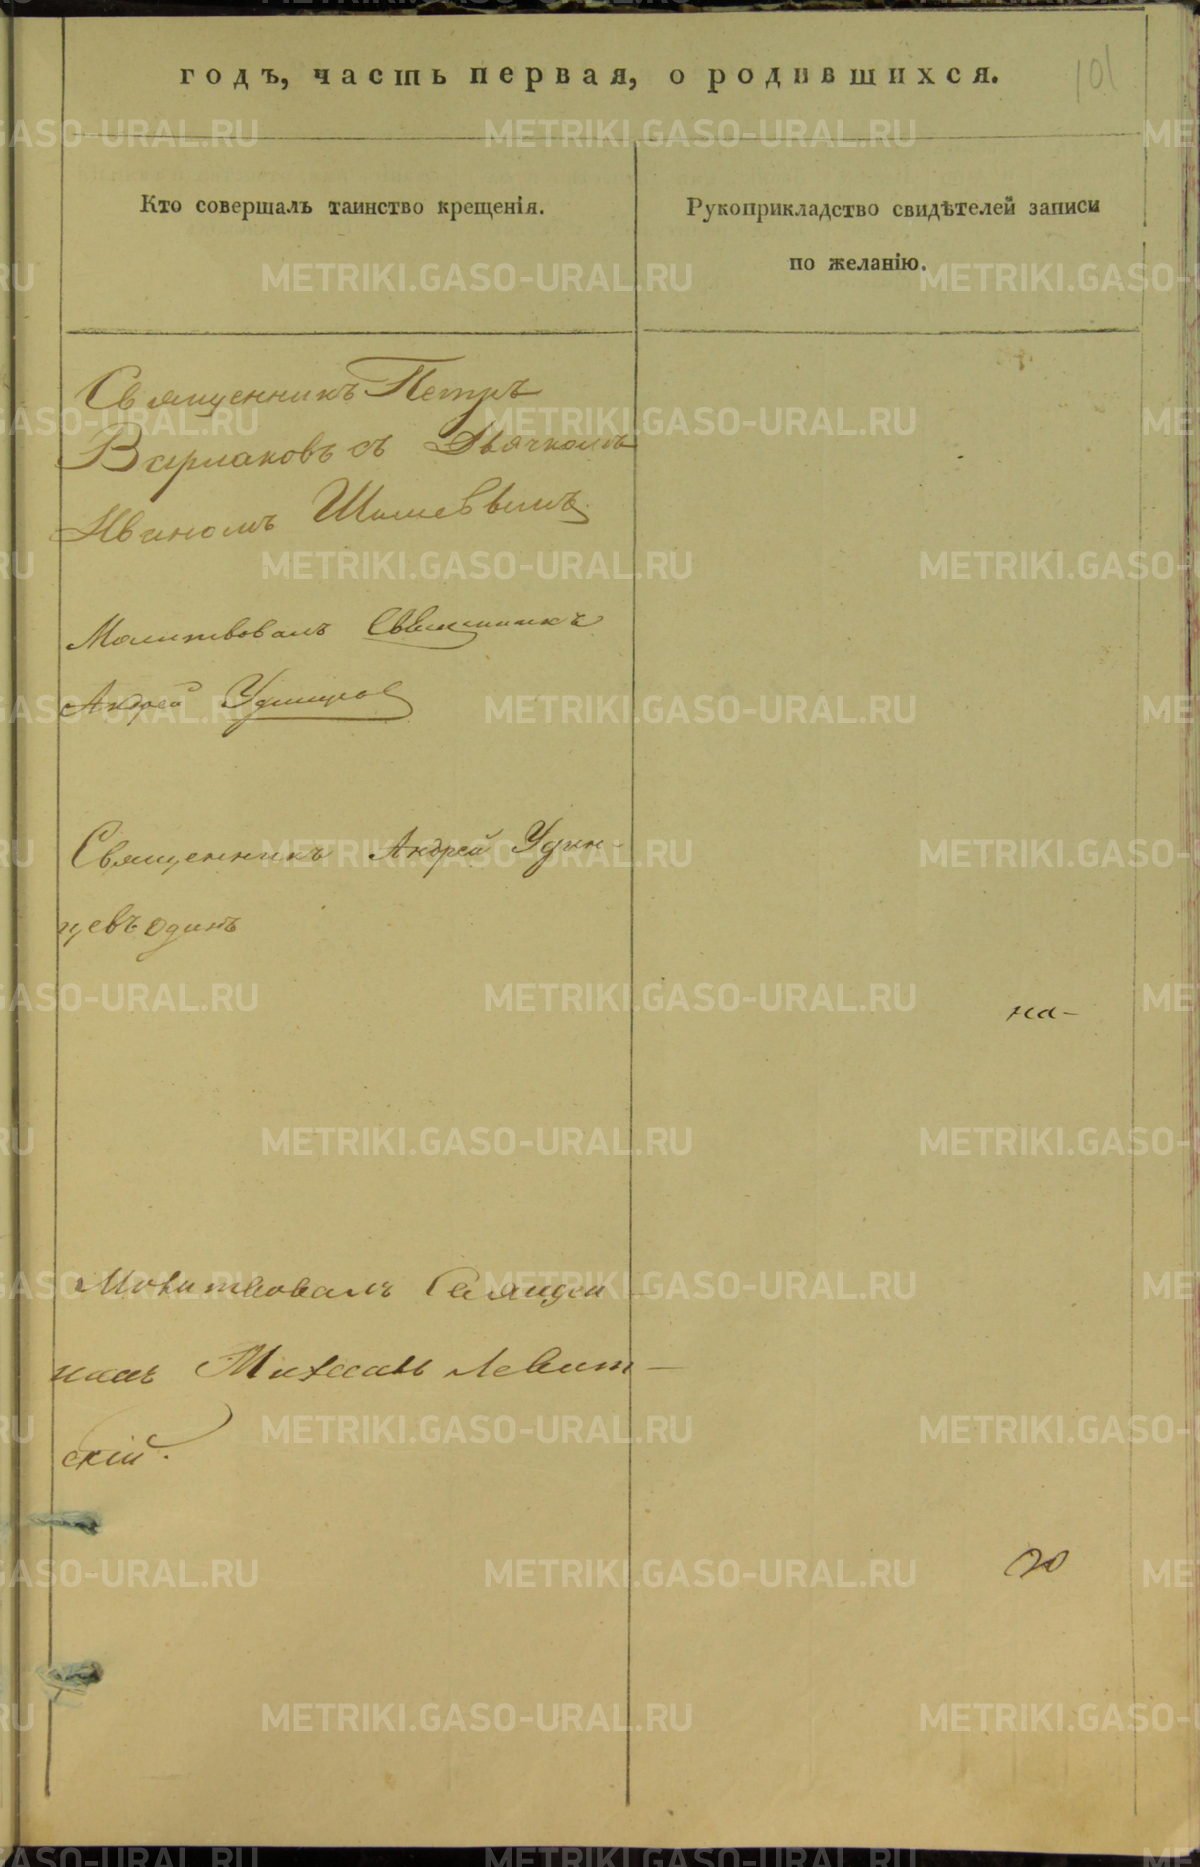 годъ, часть первая, о родившихся.
101
Кто совершалъ таинство крещенія.
Рукоприкладство свидѣтелей записи
по желанію.
Священникъ Петръ
съ Дьячкомъ
Иваномъ
Молитвовалъ Священникъ
Андрей Удинцов
Священникъ Андрей Удин-
цевъ один
на-
Молитвовалъ Священ
никъ Михаилъ Левит-
скій.
METRIKI.GASO-URAL.RU